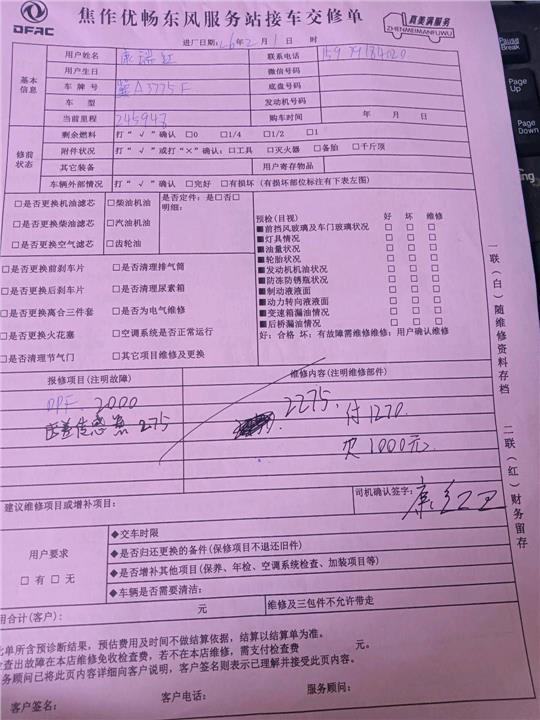 DFAC
焦作优畅东风服务站接车交修单
真美满服务
ZHENMEIMANFUWU
进厂日期: 26年2月1日 时
基本信息
用户姓名 康瑞红 联系电话
用户生日 微信号码
车牌号 冀A3775F 底盘号码
车型 发动机号码
当前里程 245948 购车时间 年 月 日
修前状态
剩余燃料 打“√”确认 □0 □1/4 □1/2 □1
附件状况 打“√”或打“×”确认: □工具 □灭火器 □备胎 □千斤顶
其它装备 用户寄存物品
车辆外部情况 打“√”确认 □完好 □有损坏 (有损坏部位标注有下表左图)
□是否更换机油滤芯 □柴油机油 是否定件: 是□否□
明细:
□是否更换柴油滤芯 □汽油机油
□是否更换空气滤芯 □齿轮油
□是否更换前刹车片 □是否清理排气筒
□是否更换后刹车片 □是否清理尿素箱
□是否更换离合三件套 □是否为电气维修
□是否更换火花塞 □空调系统是否正常运行
□是否清理节气门 □其它项目维修及更换
预检(目视) 好 坏 维修
■前挡风玻璃及车门玻璃状况 □ □ □
■灯具情况 □ □ □
■油量状况 □ □ □
■轮胎状况 □ □ □
■发动机机油状况 □ □ □
■防冻防锈瓶状况 □ □ □
■制动液液面 □ □ □
■动力转向液液面 □ □ □
■变速箱漏油情况 □ □ □
■后桥漏油情况 □ □ □
好: 合格 坏: 有故障需维修维修: 用户确认维修
报修项目(注明故障) 维修内容(注明维修部件)
DPF 2000 2275, 付1270.
压差传感器 275
欠1000元
建议维修项目或增补项目:
司机确认签字: 康红卫
用户要求
□有 □无
◆交车时限
◆是否归还更换的备件(保修项目不退还旧件)
◆是否增补其他项目(保养、年检、空调系统检查、加装项目等)
◆车辆是否需要清洁:
用合计(客户): 元 维修及三包件不允许带走
此单所含预诊断结果, 预估费用及时间不做结算依据, 结算以结算单为准。
检查出故障在本店维修免收检查费, 若不在本店维修, 需支付检查费 元。
服务顾问已将此页内容详细向客户说明, 客户签名则表示已理解并接受此页内容。
客户签名: 客户电话: 服务顾问:
一联(白)随维修资料存档
二联(红)财务留存
Pause
Break
Page
Up
Page
Down